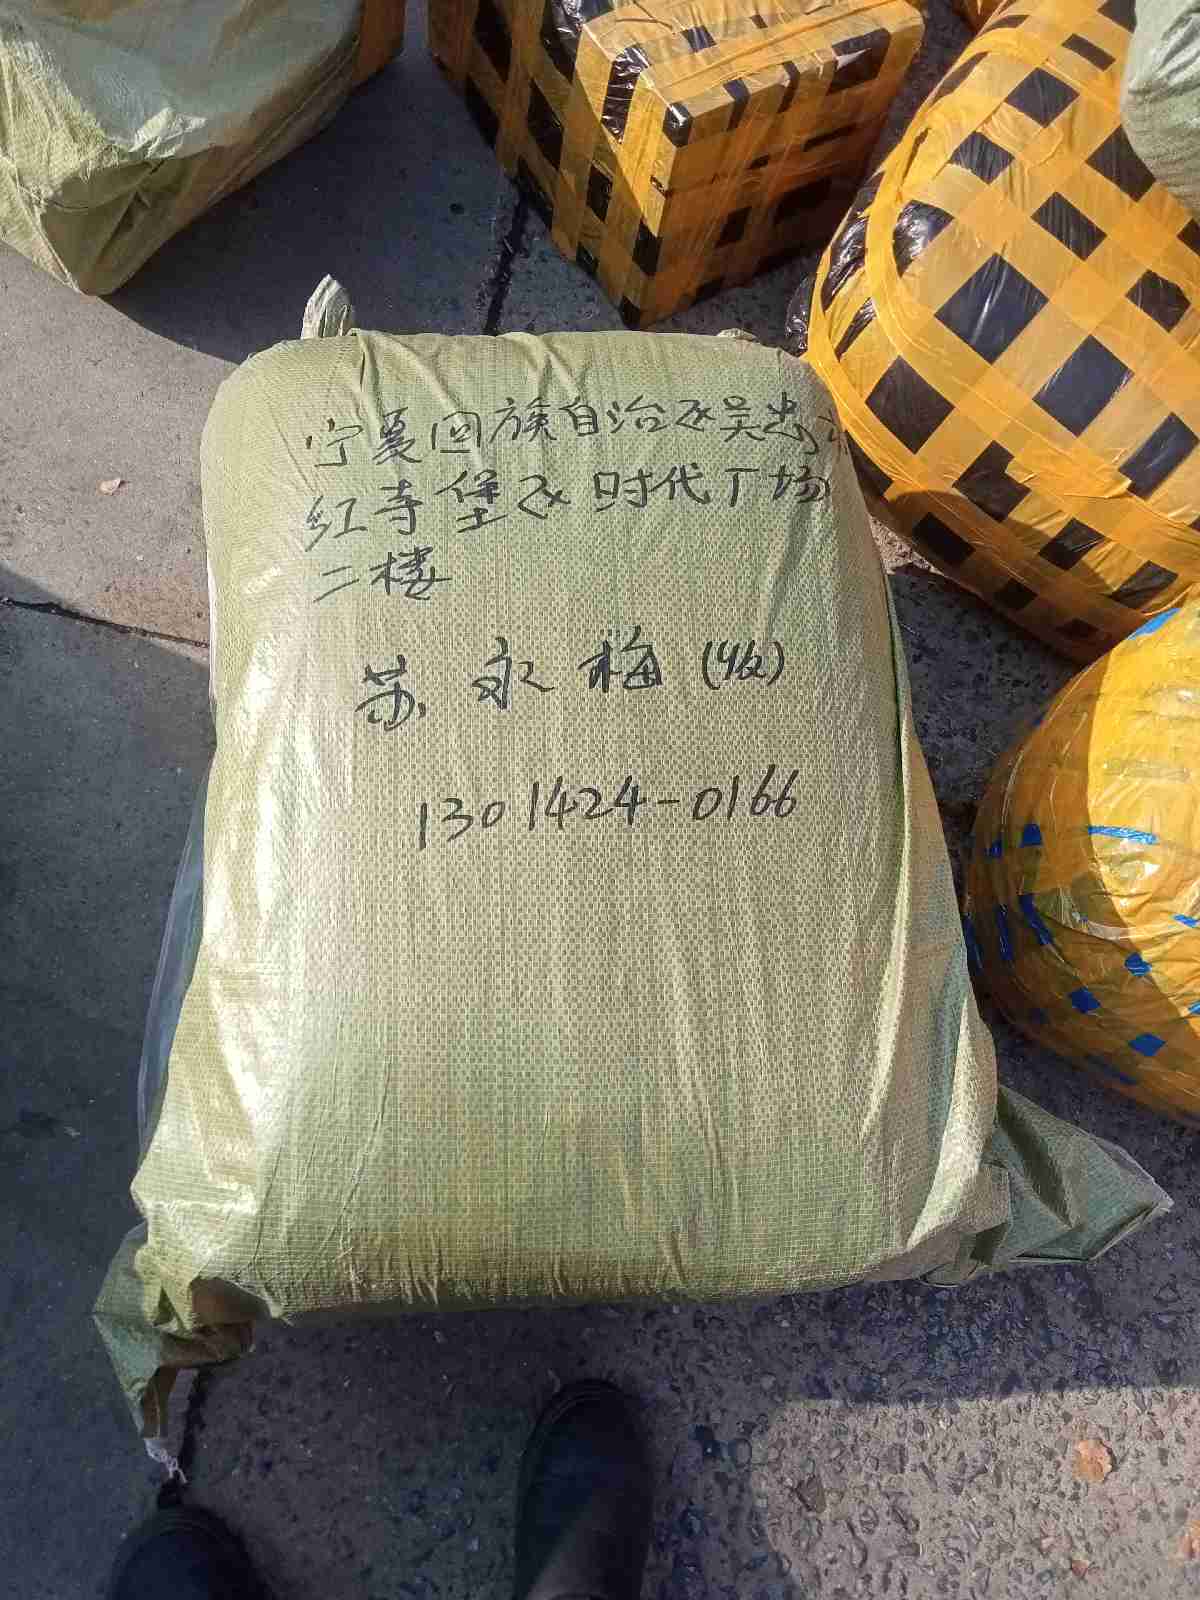 宁夏回族自治区吴忠市
红寺堡区时代广场
二楼
苏永梅(收)
1301424-0166